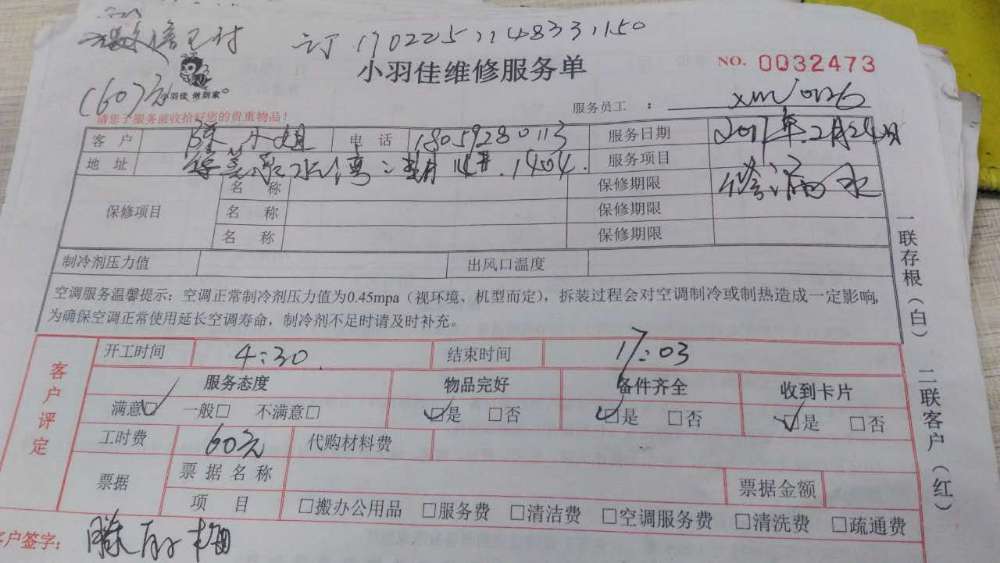 微信已付 订1702251148331150
(60)元
小羽佳 做到家
小羽佳维修服务单
NO. 0032473
请您于服务前收拾好您的贵重物品!
服务员工: xm0126
客户 陈小姐 电话 18059280113 服务日期 2017年2月24日
地址 二期 1404. 服务项目 修漏水
保修项目 名称 保修期限
名称 保修期限
名称 保修期限
制冷剂压力值 出风口温度
空调服务温馨提示:空调正常制冷剂压力值为0.45mpa(视环境、机型而定),拆装过程会对空调制冷或制热造成一定影响,
为确保空调正常使用延长空调寿命,制冷剂不足时请及时补充。
一联存根(白) 二联客户(红)
客户评定
开工时间 4:30 结束时间 17:03
服务态度 物品完好 备件齐全 收到卡片
满意☑ 一般□ 不满意□ ☑是 □否 ☑是 □否 ☑是 □否
工时费 60元 代购材料费
票据 票据名称 票据金额
项目 □搬办公用品 □服务费 □清洁费 □空调服务费 □清洗费 □疏通费
客户签字: